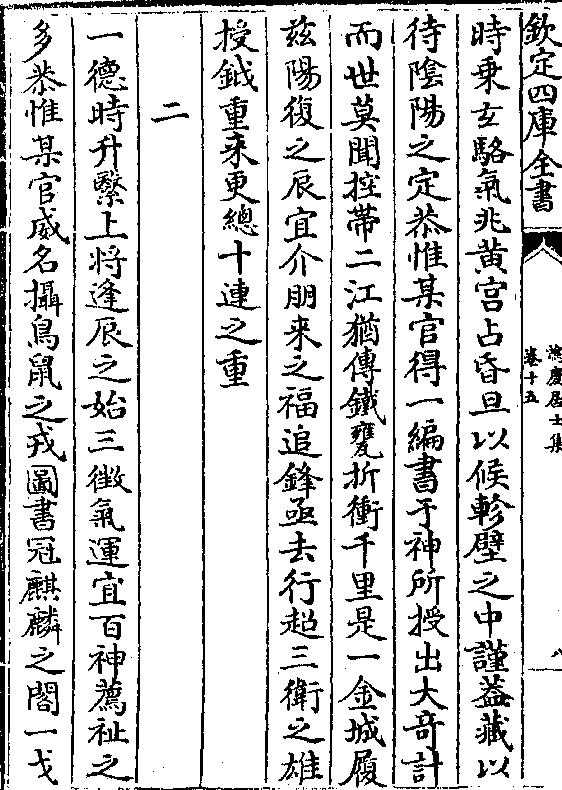 欽定四庫全書
鴻慶居士集
卷十五
八
時乗玄駱氣兆黄宫占昏旦以候軫壁之中謹葢藏以
待隂陽之定恭惟某官得一編書于神所授出大竒計
而世莫聞控帶二江猶傳鐵甕折衝千里是一金城履
兹陽復之辰宜介朋来之福追鋒亟去行超三衛之雄
授鉞重来更緫十連之重
二
一德時升繄上將逢辰之始三微氣運宜百神薦祉之
多恭惟某官威名攝鳥䑕之戎圖書冠麒麟之閣一戈